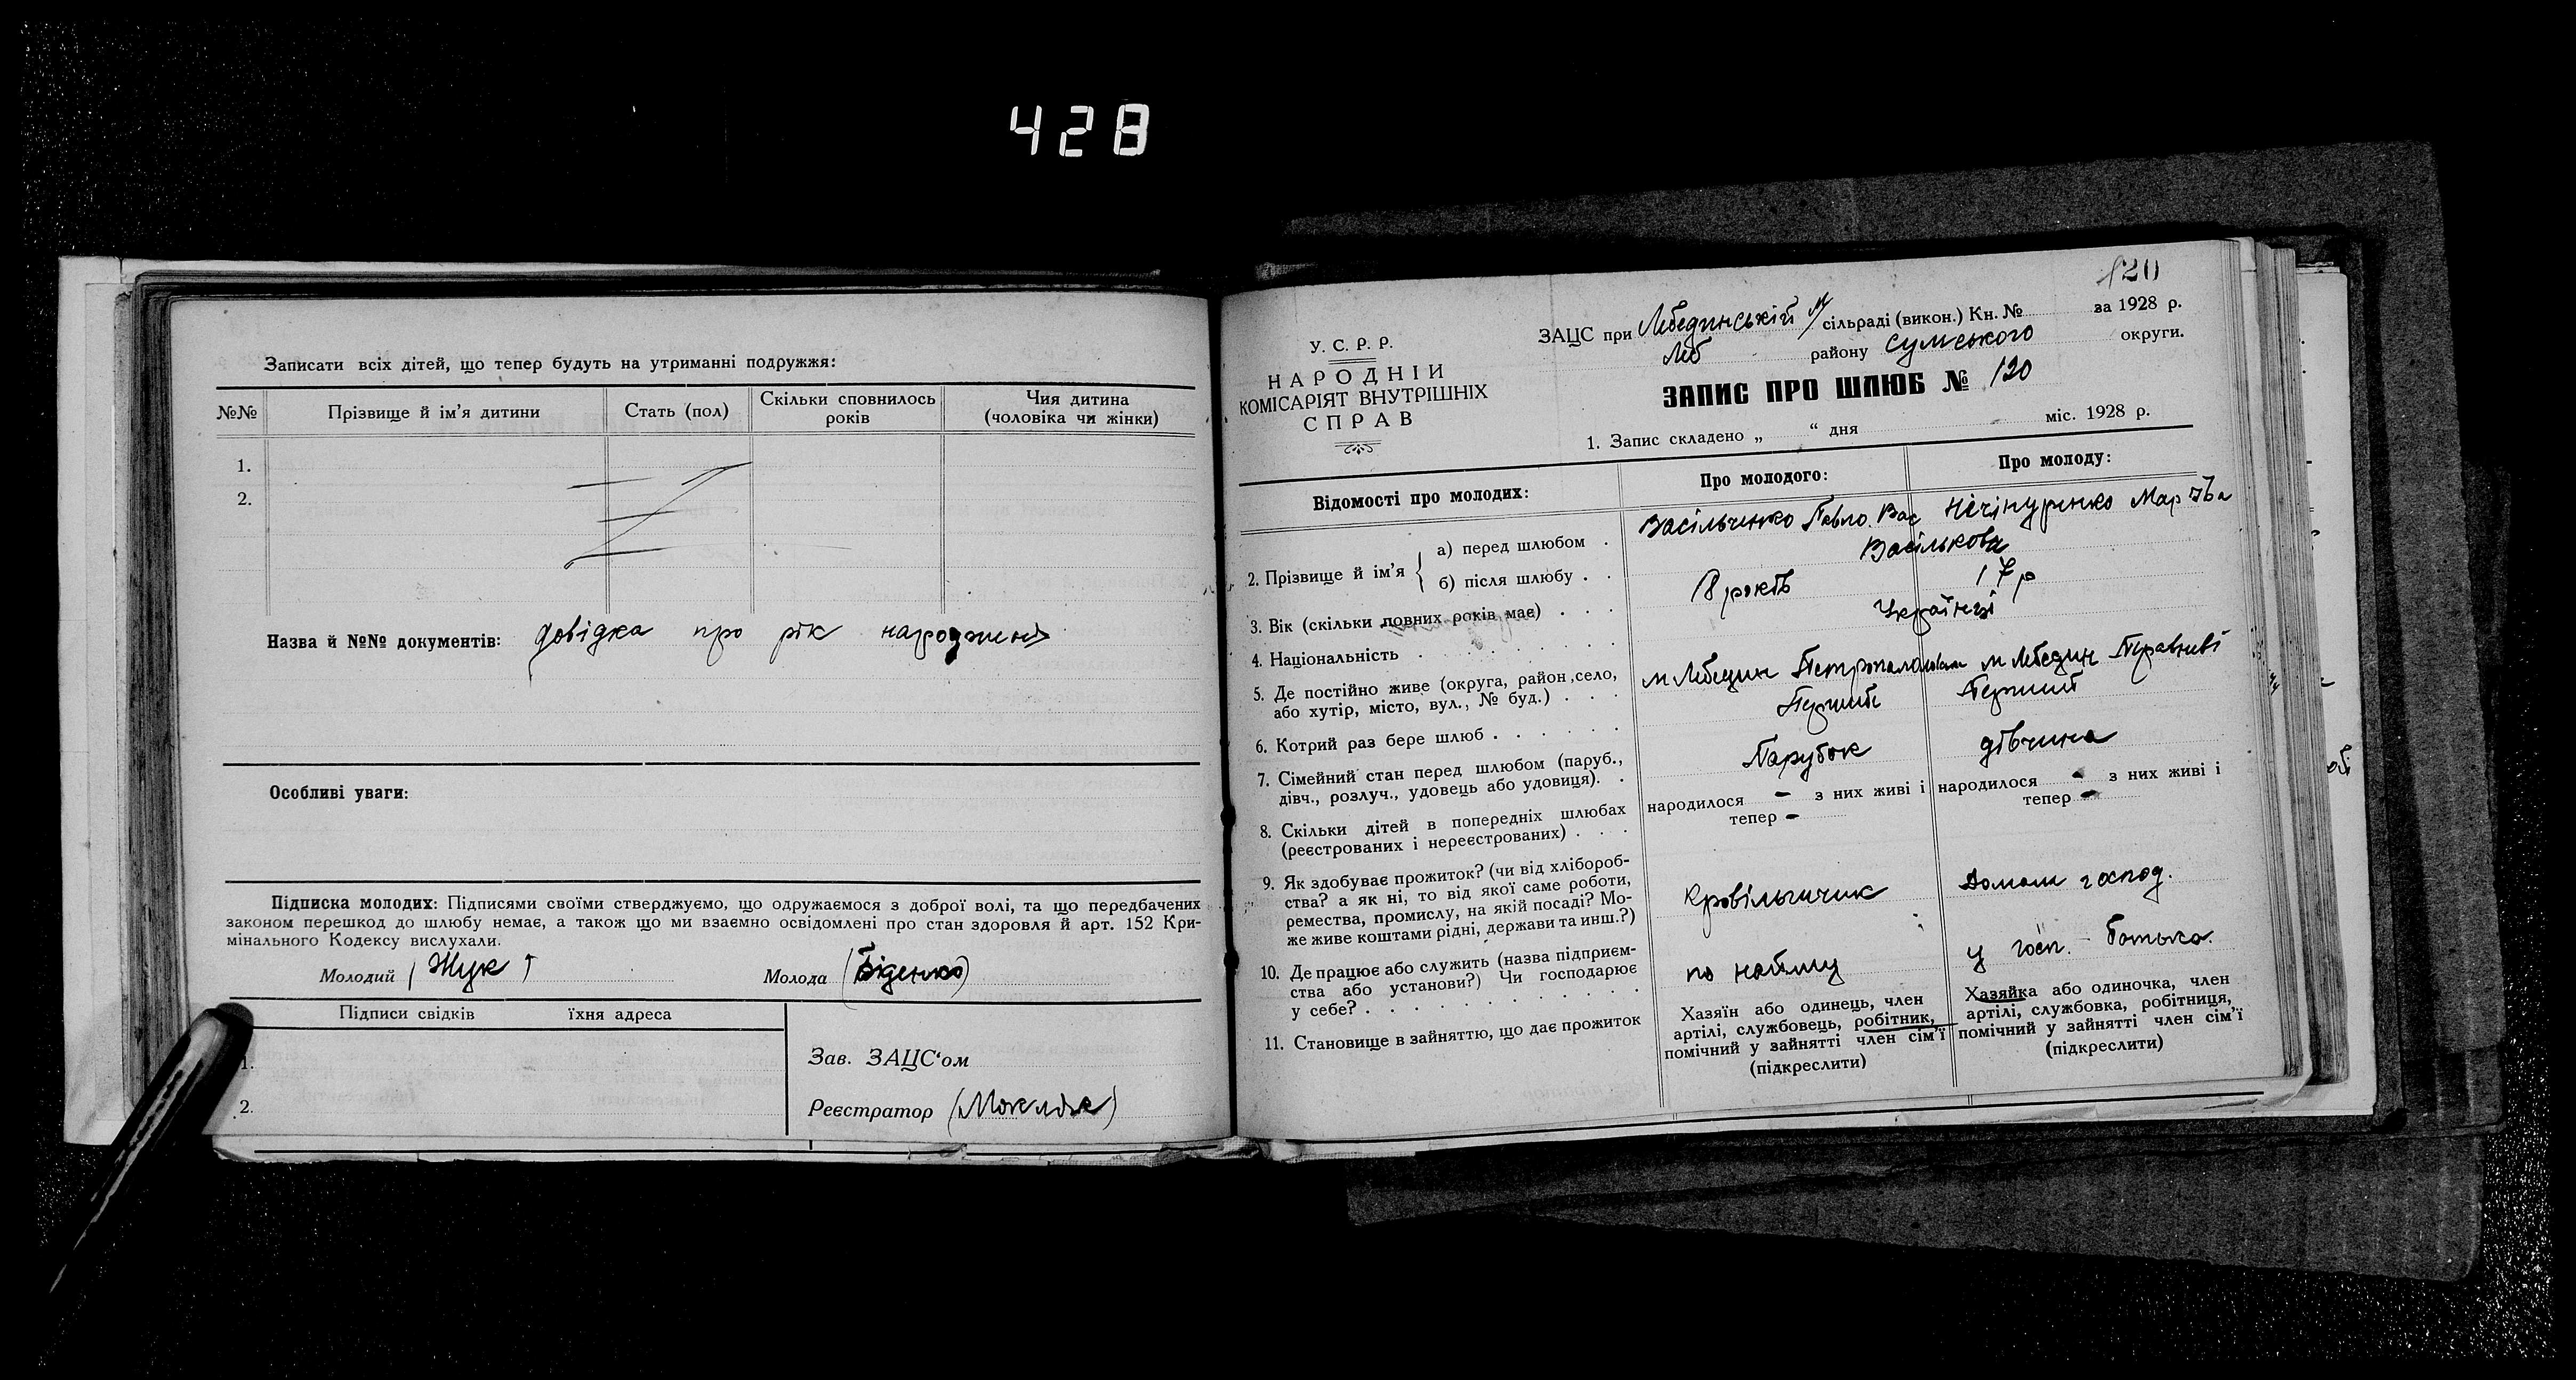 428
Записати всіх дітей, що тепер будуть на утриманні подружжя:
№№ Прізвище й ім'я дитини Стать (пол) Скільки сповнилось років Чия дитина (чоловіка чи жінки)
1.
2.
Назва й №№ документів: довідка про рік народження
Особливі уваги:
Підписка молодих: Підписями своїми стверджуємо, що одружаємося з доброї волі, та що передбачених
законом перешкод до шлюбу немає, а також що ми взаємно освідомлені про стан здоровля й арт. 152 Кри-
мінального Кодексу вислухали.
Молодий (Жук) Молода (Біденко)
Підписи свідків їхня адреса
1.
2.
Зав. ЗАЦС'ом
Реєстратор
120
У. С. Р. Р.
НАРОДНІЙ
КОМІСАРІЯТ ВНУТРІШНІХ
СПРАВ
ЗАЦС при Лебединській м/сільраді (викон.) Кн. № за 1928 р.
Леб району Сумського округи.
ЗАПИС ПРО ШЛЮБ № 120
1. Запис складено „ “ дня міс. 1928 р.
Відомості про молодих: Про молодого: Про молоду:
2. Прізвище й ім'я { а) перед шлюбом . Васільченко Павло Вас Нечіпуренко
б) після шлюбу . . Васількова
3. Вік (скільки повних років має) . . . 18 років 17 р
4. Національність Українці
5. Де постійно живе (округа, район, село,
або хутір, місто, вул., № буд.) . . . м Лебедин м Лебедин
6. Котрий раз бере шлюб . . . . . . Перший Перший
7. Сімейний стан перед шлюбом (паруб.,
дівч., розлуч., удовець або удовиця). . Парубок дівчина
8. Скільки дітей в попередніх шлюбах
(реєстрованих і нереєстрованих) . . .
народилося - з них живі і
тепер -
народилося - з них живі і
тепер -
9. Як здобуває прожиток? (чи від хлібороб-
ства? а як ні, то від якої саме роботи,
ремества, промислу, на якій посаді? Мо-
же живе коштами рідні, держави та инш.?)
Кровільщик
Домаш господ.
10. Де працює або служить (назва підприєм-
ства або установи?) Чи господарює
у себе? . . . . . . . . . .
по найму
у госп. батька.
11. Становище в зайняттю, що дає прожиток
Хазяїн або одинець, член
артілі, службовець, робітник,
помічний у зайнятті член сім'ї
(підкреслити)
Хазяйка або одиночка, член
артілі, службовка, робітниця,
помічний у зайнятті член сім'ї
(підкреслити)